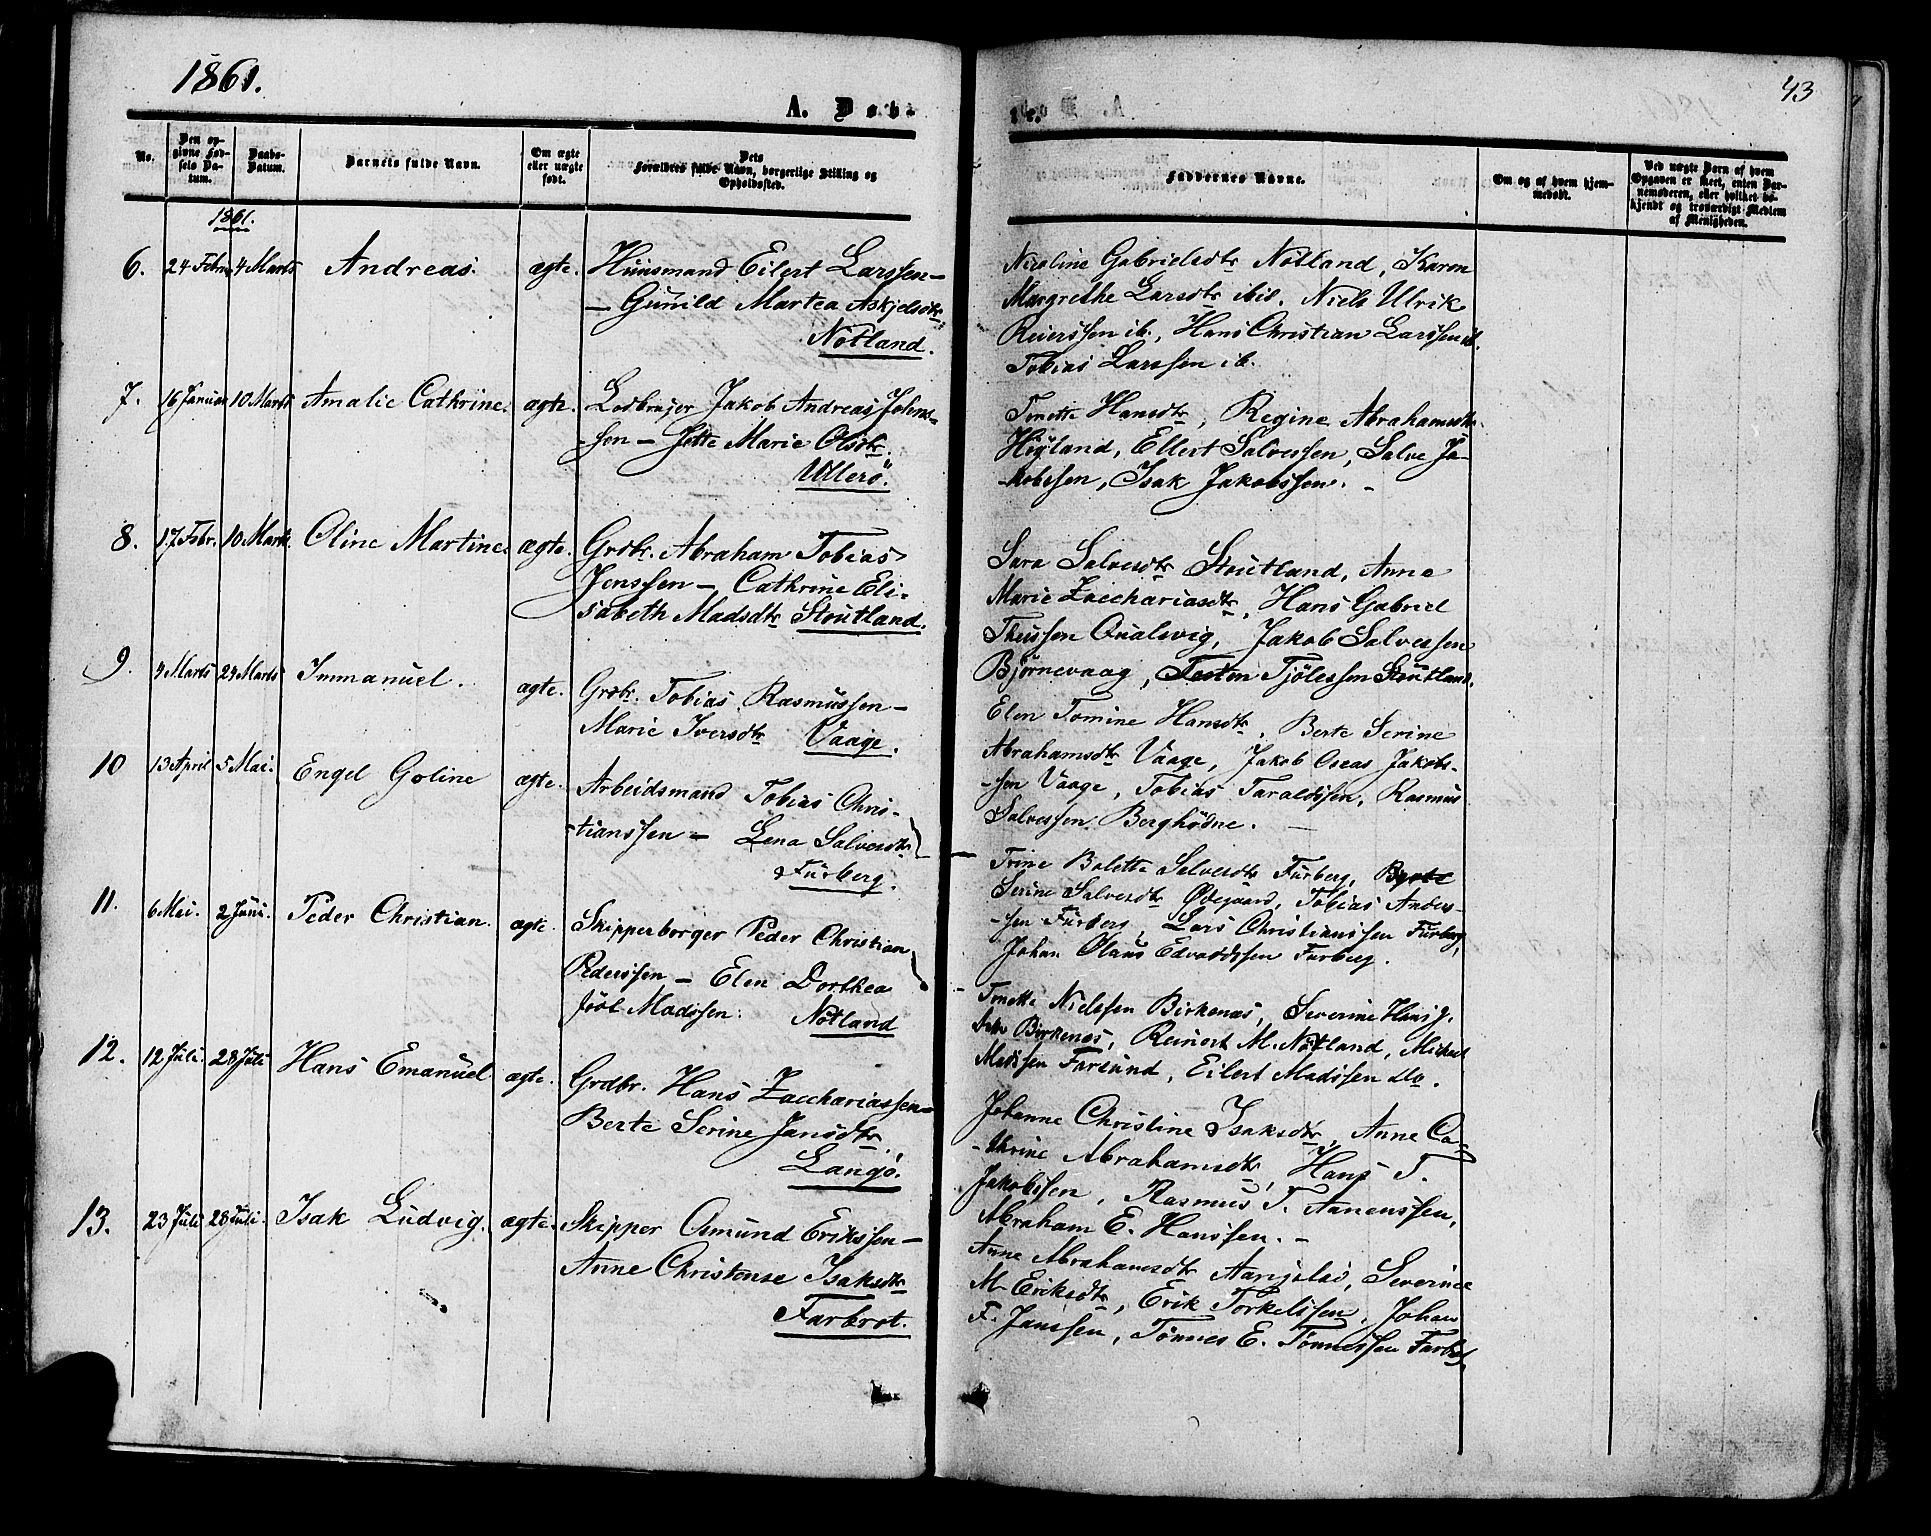 1861.
43
A. Døbte.
No.
Den opgivne Fødsels Datum.
Daabs-Datum.
Barnets fulde Navn.
Om ægte eller uægte født.
Dets Forældres fulde Navn, borgerlige Stilling og Opholdssted.
Faddernes Navne.
Om og af hvem hjemmedøbt.
Ved uægte Barn af hvem Opgaven er skeet, enten Barnemoderen, eller hvilket bekjendt og troværdigt Medlem af Menigheden.
1861.
6. 24 Febru 4 Marts Andreas. ægte. Huusmand Eilert Larssen —
— Gunild Martea Askjelsdtr
Nøtland.
Nicoline Gabrielsdtr Nøtland, Karen
Margrethe Larsdtr ibid. Niels Ulrik
Reierssen ib., Hans Christian Larssen ib.
Tobias Larssen ib.
7. 16 Januar 10 Marts Amalie Cathrine. ægte. Lodbruger Jakob Andreas Johns-
-sen — Jette Marie Olsdtr.
Ullerø.
Tonette Hansdtr, Regine Abrahamsdtr
Høyland, Ellert Salvessen, Salve Ja-
-kobssen, Isak Jakobssen. -
8. 17 Febr. 10 Marts. Oline Martine. ægte. Grdbr. Abraham Tobias
Jenssen — Cathrine Eli-
sabeth Madsdtr Stoutland.
Sara Salvesdtr Stoutland, Anne
Marie Zacchariasdtr, Hans Gabriel
Theissen Qualsvig, Jakob Salvessen
Bjørnevaag, Torsten Tjølessen Stoutland.
9. 4 Marts 24 Marts Immanuel. ægte. Grdbr. Tobias Rasmussen —
Marie Iversdtr Vaage.
Elen Tomine Hansdtr, Berte Serine
Abrahamsdtr Vaage, Jakob Oseas Jakobs-
-sen Vaage, Tobias Taraldssen, Rasmus
Salvessen Berghødne. —
10 13 April 5 Mai. Engel Goline ægte. Arbeidsmand Tobias Chris-
-tianssen — Lena Salvesdtr
Furberg.
Trine Bolette Salvesdtr Furberg, Berte
Serine Salvesdtr Ødegaard, Tobias Anders-
-sen Furberg, Lars Christianssen Furberg,
Johan Olaus Edvardssen Furberg.
11. 6 Mai. 2 Juni. Peder Christian. ægte. Skipperborger Peder Christian
Pederssen — Elen Dorthea
født Madssen. Nøtland
Tonette Nielssen Birkenæs, Severine
Birkenæs, Reinert M. Nøtland, Michael
Madssen Farsund, Eilert Madssen do.
12. 12 Juli. 28 Juli Hans Emanuel ægte. Grdbr. Hans Zacchariassen —
Berte Serine Jansdtr.
Langø.
Johanne Christine Isaksdtr, Anne Ca-
-thrine Abrahamsdtr, Hans T.
Jakobssen, Rasmus T. Aanenssen,
Abraham E. Hanssen. -
13. 23 Juli 28 Juli. Isak Ludvig. ægte. Skipper Osmund Erikssen —
Anne Christense Isaksdtr
Farbrot.
Anne Abrahamsdtr, Severine
M. Eriksdtr, Erik Torkelssen, Johan
F. Janssen, Tønnes E. Tønnessen Farbrot.